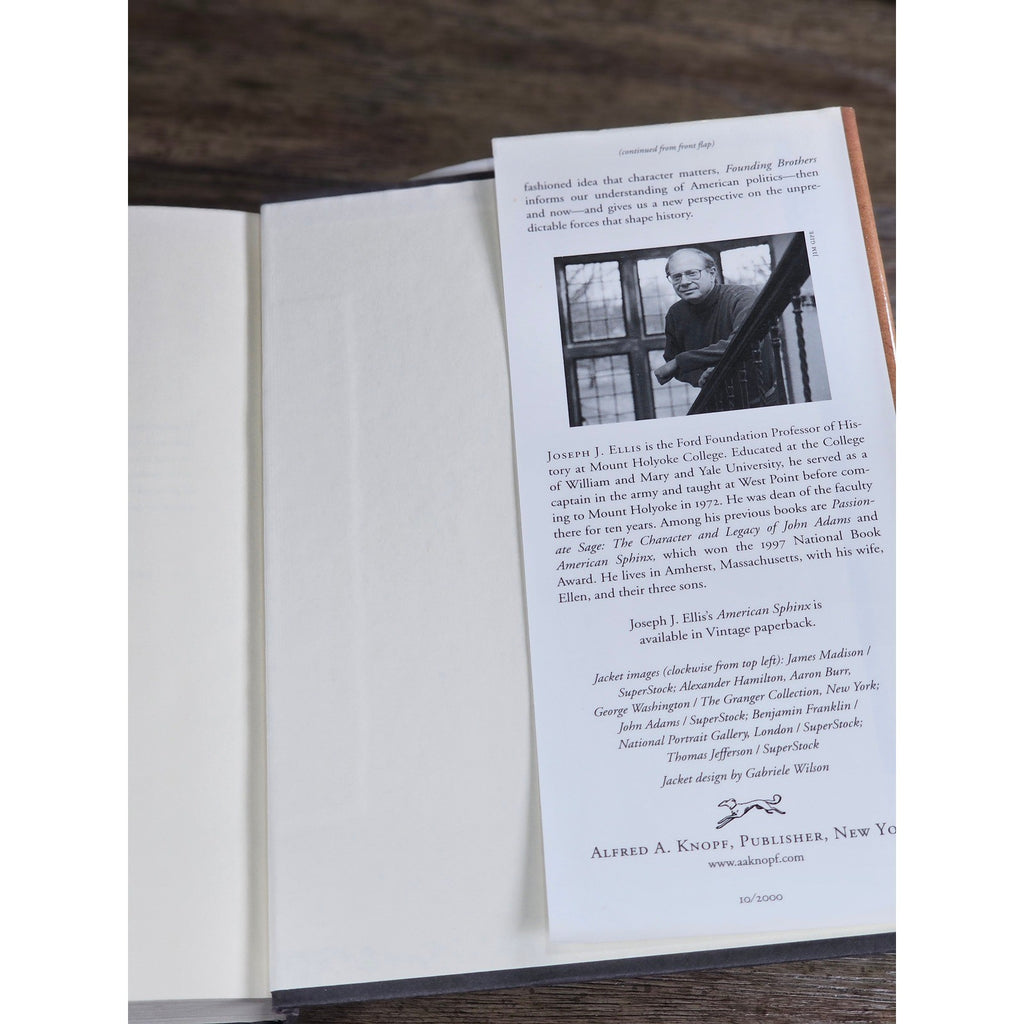 (continued from front flap)
fashioned idea that character matters, Founding Brothers
informs our understanding of American politics—then
and now—and gives us a new perspective on the unpre-
dictable forces that shape history.
JIM GIPE
JOSEPH J. ELLIS is the Ford Foundation Professor of His-
tory at Mount Holyoke College. Educated at the College
of William and Mary and Yale University, he served as a
captain in the army and taught at West Point before com-
ing to Mount Holyoke in 1972. He was dean of the faculty
there for ten years. Among his previous books are Passion-
ate Sage: The Character and Legacy of John Adams and
American Sphinx, which won the 1997 National Book
Award. He lives in Amherst, Massachusetts, with his wife,
Ellen, and their three sons.
Joseph J. Ellis's American Sphinx is
available in Vintage paperback.
Jacket images (clockwise from top left): James Madison /
SuperStock; Alexander Hamilton, Aaron Burr,
George Washington / The Granger Collection, New York;
John Adams / SuperStock; Benjamin Franklin /
National Portrait Gallery, London / SuperStock;
Thomas Jefferson / SuperStock
Jacket design by Gabriele Wilson
ALFRED A. KNOPF, PUBLISHER, NEW YO
www.aaknopf.com
10/2000